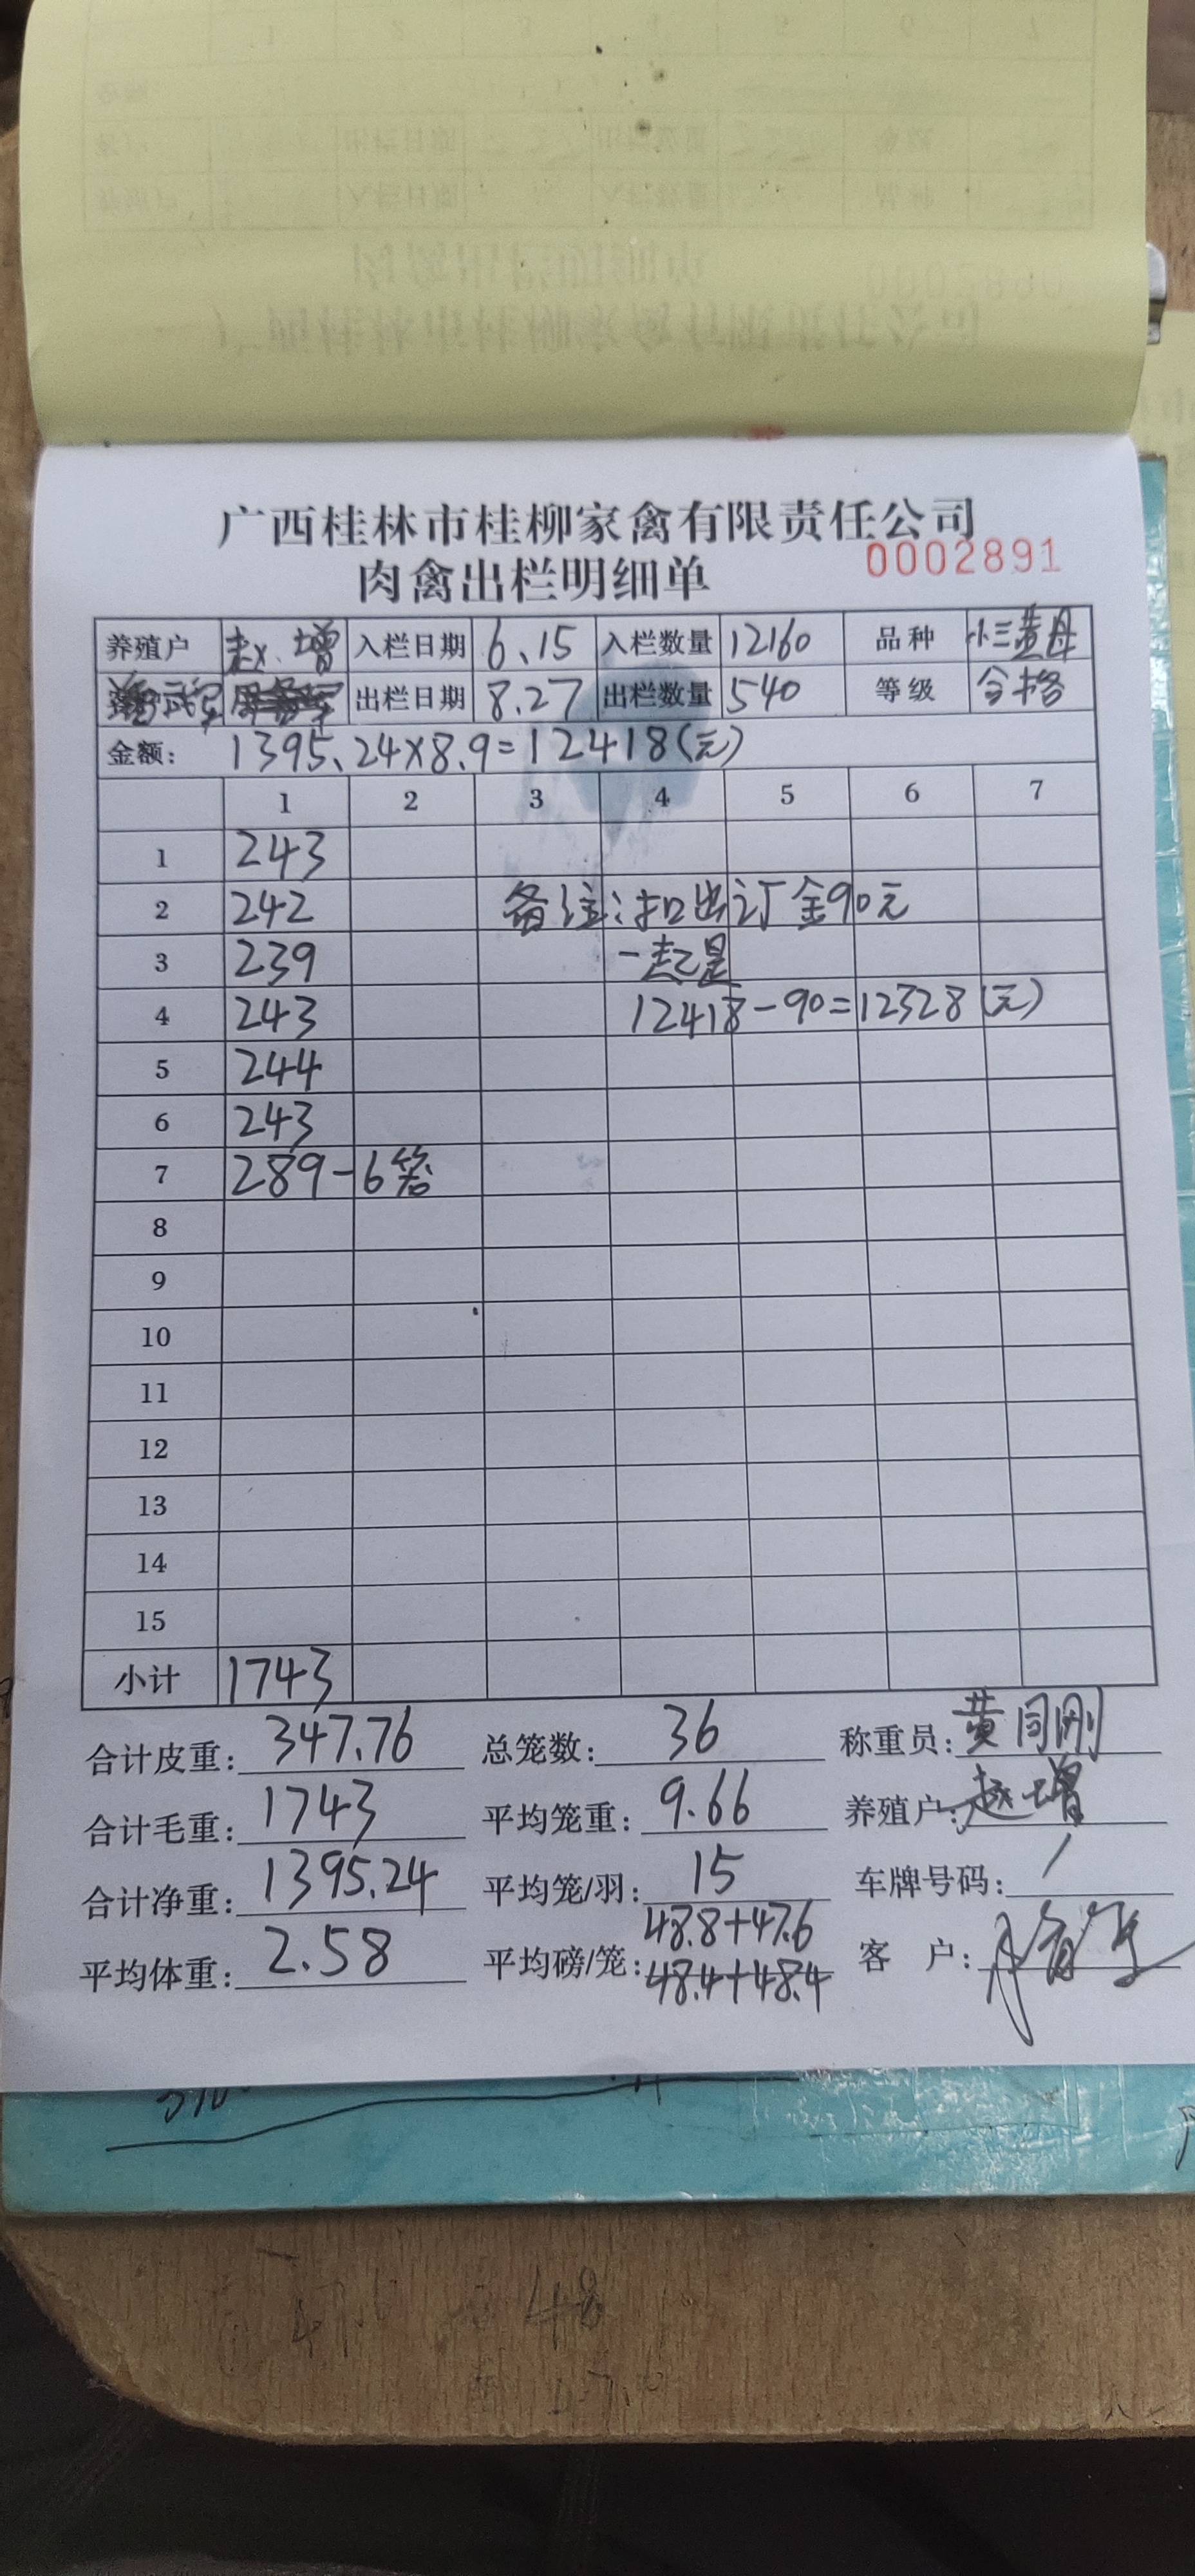 广西桂林市桂柳家禽有限责任公司
肉禽出栏明细单 0002891
养殖户 赵增 入栏日期 6.15 入栏数量 12160 品种 小三黄母
出栏日期 8.27 出栏数量 540 等级 合格
金额: 1395.24×8.9=12418(元)
1 2 3 4 5 6 7
1 243
2 242 备注:扣出订金90元
3 239 一起是
4 243 12418-90=12328(元)
5 244
6 243
7 289-6笼
8
9
10
11
12
13
14
15
小计 1743
合计皮重: 347.76 总笼数: 36 称重员: 黄同刚
合计毛重: 1743 平均笼重: 9.66 养殖户: 赵增
合计净重: 1395.24 平均笼/羽: 15 车牌号码: /
48.8+47.6
平均体重: 2.58 平均磅/笼: 48.4+48.4 客户:
48